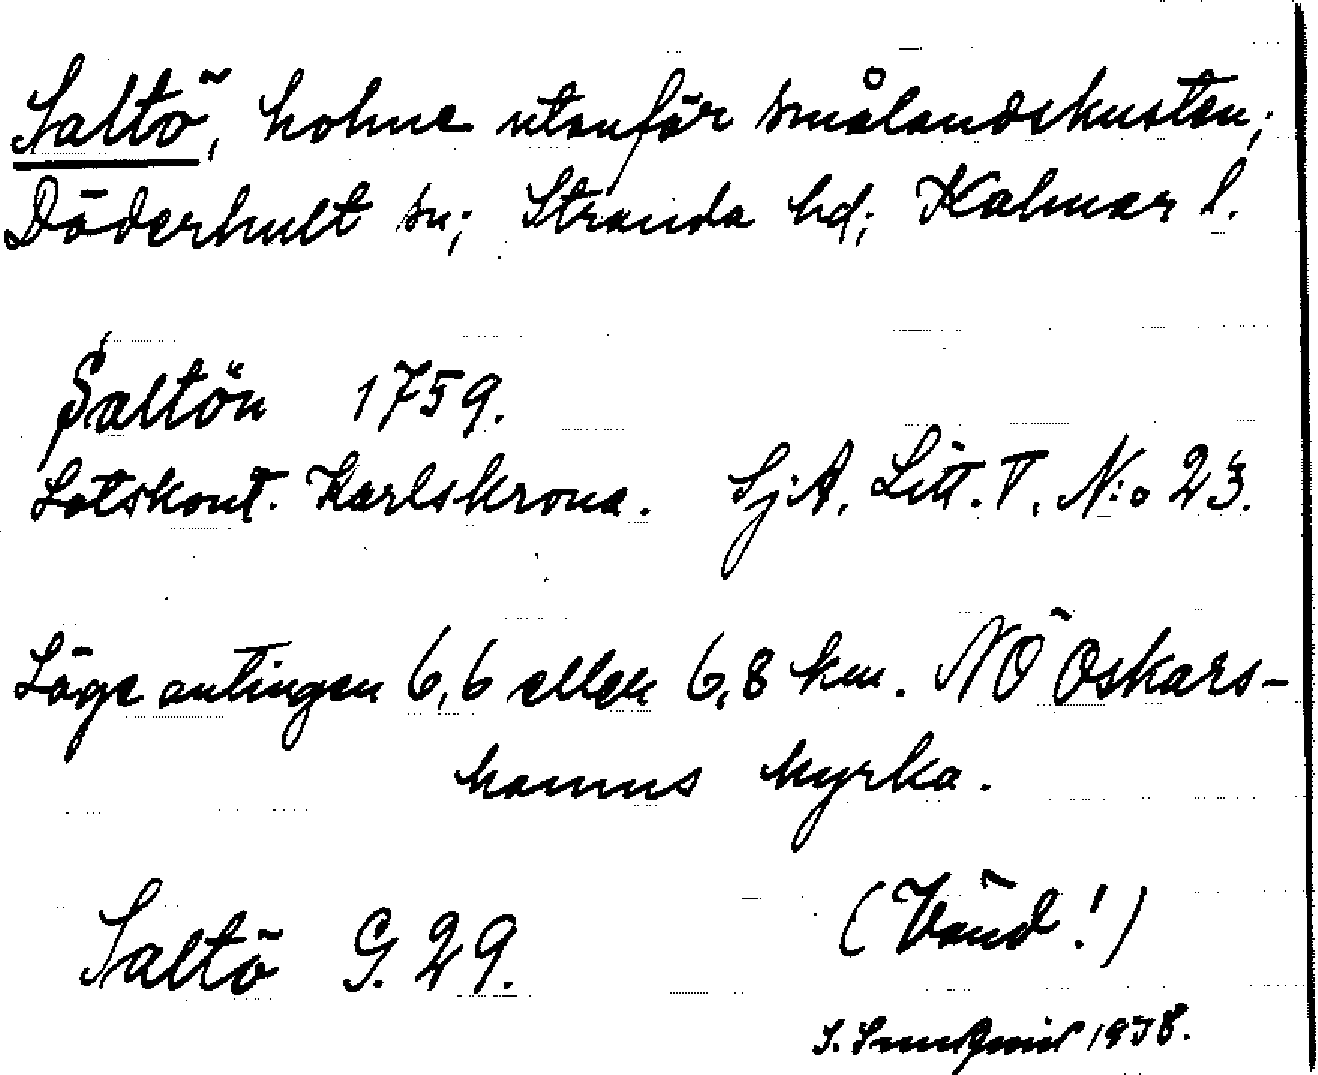 Saltö, holme utanför smålandskusten;
Döderhult sn; Stranda hd; Kalmar l.
Saltön 1759.
Lotskont. Karlskrona. Sj.A. Litt. T. N:o 23.
Läge antingen 6,6 eller 6,8 km. NÖ Oskars-
hamns kyrka.
Saltö G. 29.
(Vänd!)
1938.